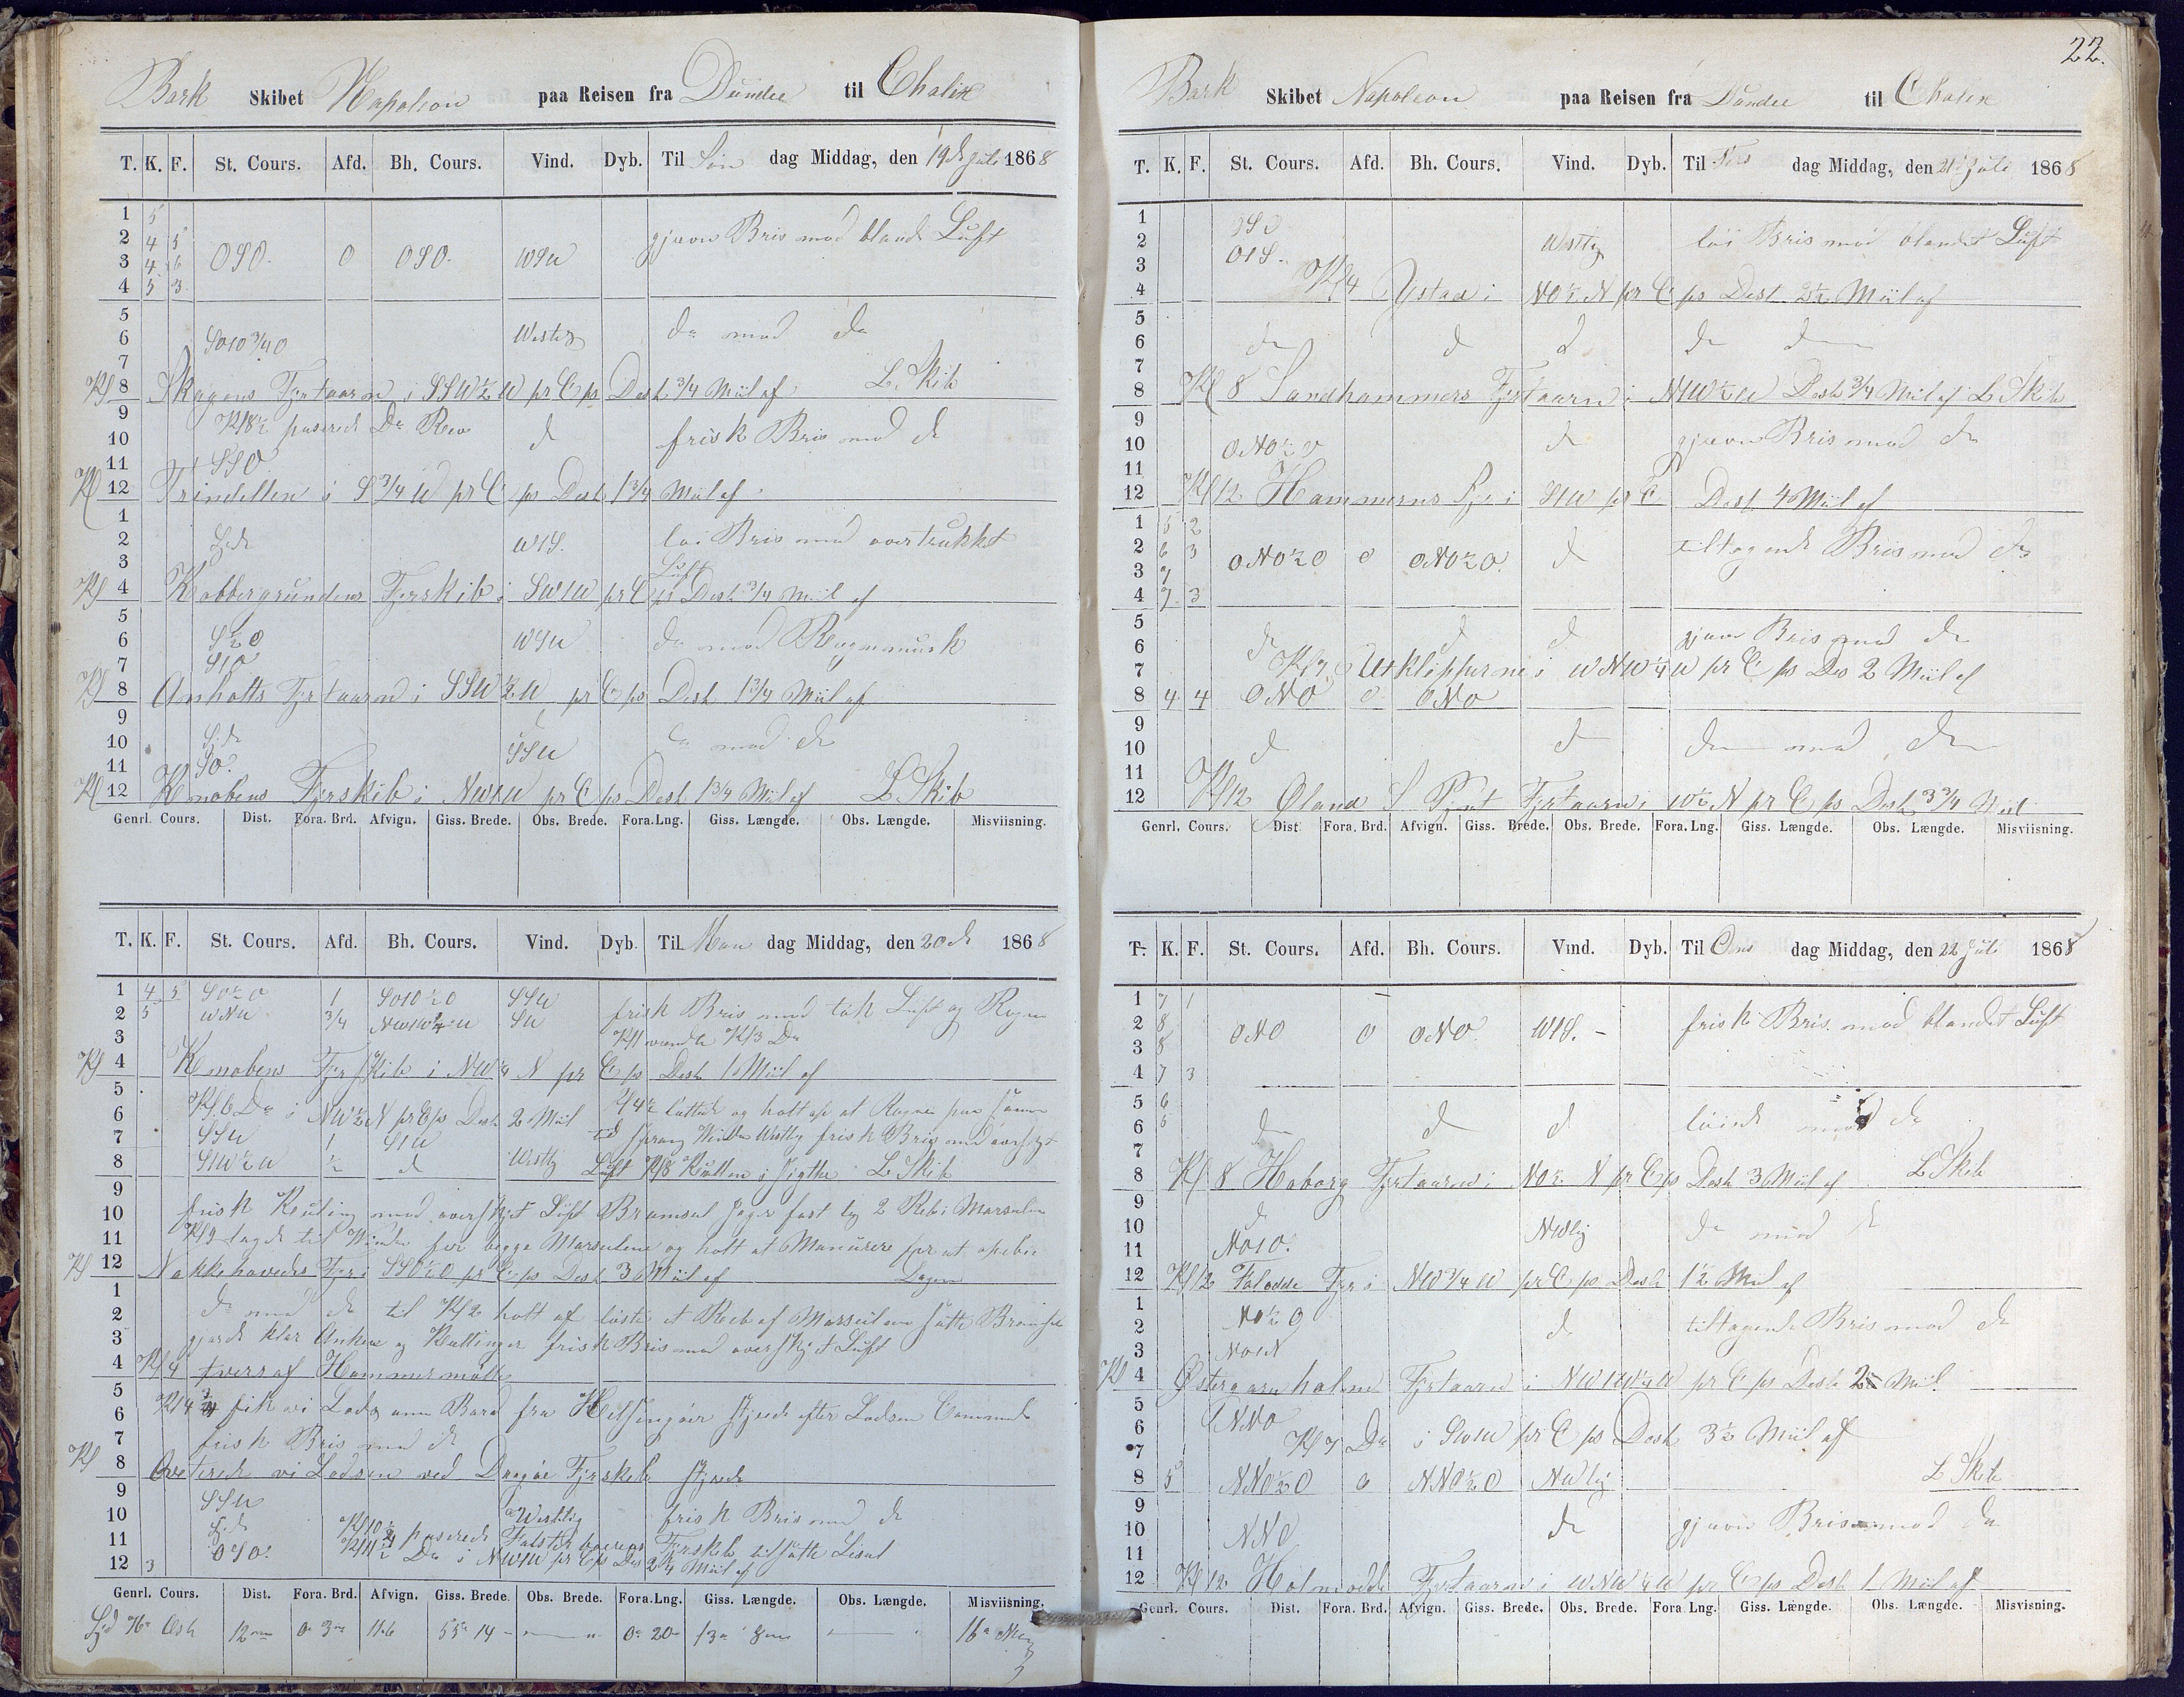 Bark Skibet Napoleon paa Reisen fra Dundee til Chalix
T. K. F. St. Cours. Afd. Bh. Cours. Vind. Dyb. Til Søn dag Middag, den 19de Juli 1868
1 5
2 4 5 OSO. 0 OSO. WSW gjævn Bris med bland Luft
3 4 6
4 5 3
5
6 SO1O 3/4 O Westlig do med do
7
Kl 8 Skagens Fyrtaarn i SSW 1/2 W pr C ps Dest 3/4 Miil af L. Skib
9 Kl 8 1/2 paserede Do Rev d frisk Bris med d
10
11 SSO
Kl 12 Trindellen i S 3/4 W pr C ps Dest 1 3/4 Miil af
1
2 S.de W1S. løi Bris med overtrukket
3 Luft
Kl 4 Kobbergrundens Fyrskib i SW1W pr C ps Dest 3/4 Miil af
5
6 S 1/2 O WSW do med
7 S1O
Kl 8 Anholts Fyrtaarn i SSW 1/2 W pr C ps Dest 1 3/4 Miil af
9
10 S.de SSW do med de
11 SO.
Kl 12 Knobens Fyrskib i NW1W pr C ps Dest 1 3/4 Miil af L Skib
Genrl. Cours. Dist. Fora. Brd. Afvign. Giss. Brede. Obs. Brede. Fora.Lng. Giss. Længde. Obs. Længde. Misviisning.
T. K. F. St. Cours. Afd. Bh. Cours. Vind. Dyb. Til Man dag Middag, den 20de 1868
1 4 5 SO 1/2 O 1 SO1O 1/2 O SSW frisk Bris med tøk Luft og Regn
2 5 WNW 3/4 NW1W 1/4 W SW
3 Kl 1 vendte Kl 3 Do
Kl 4 Knobens Fyrskib i NW 1/4 N pr C ps Dest 1 Miil af
5 Kl 6 Do i NW 1/2 N pr C ps Dest 2 Miil Kl 4 1/2 lættede og holt op at Regne paa samme
6 tid sprang Vinden Westlig frisk Bris med overskyt
7 SSW 1 S1W
8 S1W 1/2 W 1/2 d Westlig Luft Kl 8 Kullen i Sigthe L Skib
9
10 frisk Kuling med overskyt Luft Bramseil gjor fast og 2 Reb i Marseilene
11 Kl 9 lagde til Vinden for begge Marseilene og holt at
Kl 12 Nakkehovedes Fyr i SSO 1/2 O pr C ps Dest 3 Miil af
1
2 do med de til Kl 2 holt af løste et Reb af Marseilene satte Bramseil
3 gjorde klar Ankere og Kættinger frisk Bris med overskyt Luft
4 Kl 4 tvers af Hammermølle
5
6 Kl 4 3/4 fik vi Lods om Bord fra Helsingøer styrede efter Lodsen Commando
7 frisk Bris med de
Kl 8 vi Lodsen ved Dragøe Fyrskib styrede
9
10 SSW Westlig frisk Bris med de
11 S.de Kl 10 1/2 paserede Falsterboerens Fyrskib tilsatte Liseil
12 3 OSO. Kl 11 1/2 Do i NW1W pr C ps Des 2 1/4 Miil af
Genrl. Cours. Dist. Fora. Brd. Afvign. Giss. Brede Obs. Brede. Fora.Lng. Giss. Længde. Obs. Længde. Misviisning.
Syd 76° Ost 12 0° 3m 11.6 55° 14 — 0° 20m 13° 8m — 16°
22.
Bark Skibet Napoleon paa Reisen fra Dundee til Chalix
T. K. F. St. Cours. Afd. Bh. Cours. Vind. Dyb. Til Tirs dag Middag, den 21 Juli 1868
1 OSO
2 O1S. Westlig løi Bris med blandet Luft
3
4 Kl 4 Ystad i NO 1/2 N pr C ps Dest 2 1/2 Miil af
5
6 do d d do do
7
8 Kl 8 Sandhammers Fyrtaarn i NW 1/2 W Dest 3/4 Miil af L Skib
9
10 ONO 1/2 O d gjævn Bris med do
11
12 Kl 12 Hammerens Fyr i S1W pr C Dest 4 Miil af
1 5 2
2 6 3 ONO 1/2 O 0 ONO 1/2 O. d tiltagende Bris med do
3 7
4 7 3
5
6 d d d gjævn Bris med do
7 Kl 7 Utklippurne i WNW 1/4 W pr C ps Des 2 Miil af
8 4 4 ONO 0 ONO
9
10 d d do med do
11
12 Kl 12 Øland S Pynt Fyrtaarn i W 1/2 N pr C ps Dest 3 3/4 Miil
Genrl. Cours. Dist. Fora. Brd. Afvign. Giss. Brede. Obs. Brede. Fora.Lng. Giss. Længde. Obs. Længde. Misviisning.
T. K. F. St. Cours. Afd. Bh. Cours. Vind. Dyb. Til Ons dag Middag, den 22 Juli 1868
1 7 1
2 8 ONO 0 ONO W1S. - frisk Bris med blandet Luft
3 8
4 7 3
5 6
6 5 do d d løiende med do
7
8 Kl 8 Hoborg Fyrtaarn i NO 1/2 N pr C ps Dest 3 Miil af L Skib
9 d
10 NWlig do med d
11 NO1O.
12 Kl 12 Faludde Fyr i NW 3/4 W pr C ps Dest 1 1/2 Miil af
1 NO 1/2 O
2 d tiltagende Bris med de
3 NO1N
Kl 4 Østergarnholms Fyrtaarn i NW1W 1/4 W pr C ps Dest 2 Miil
5
6 NNO
7 Kl 7 Do i SW1W pr C ps Dest 3 1/2 Miil af
8 5 NNO 1/2 O 0 NNO 1/2 O NWlig L Skib
9
10 NNO do gjævn Bris med do
11
12 Kl 12 Holmudde Fyrtaarn i WNW 1/4 W pr C ps Dest 1 Miil af
Genrl. Cours. Dist. Fora. Brd. Afvign. Giss. Brede. Obs. Brede. Fora Lng. Giss. Længde. Obs. Længde. Misviisning.